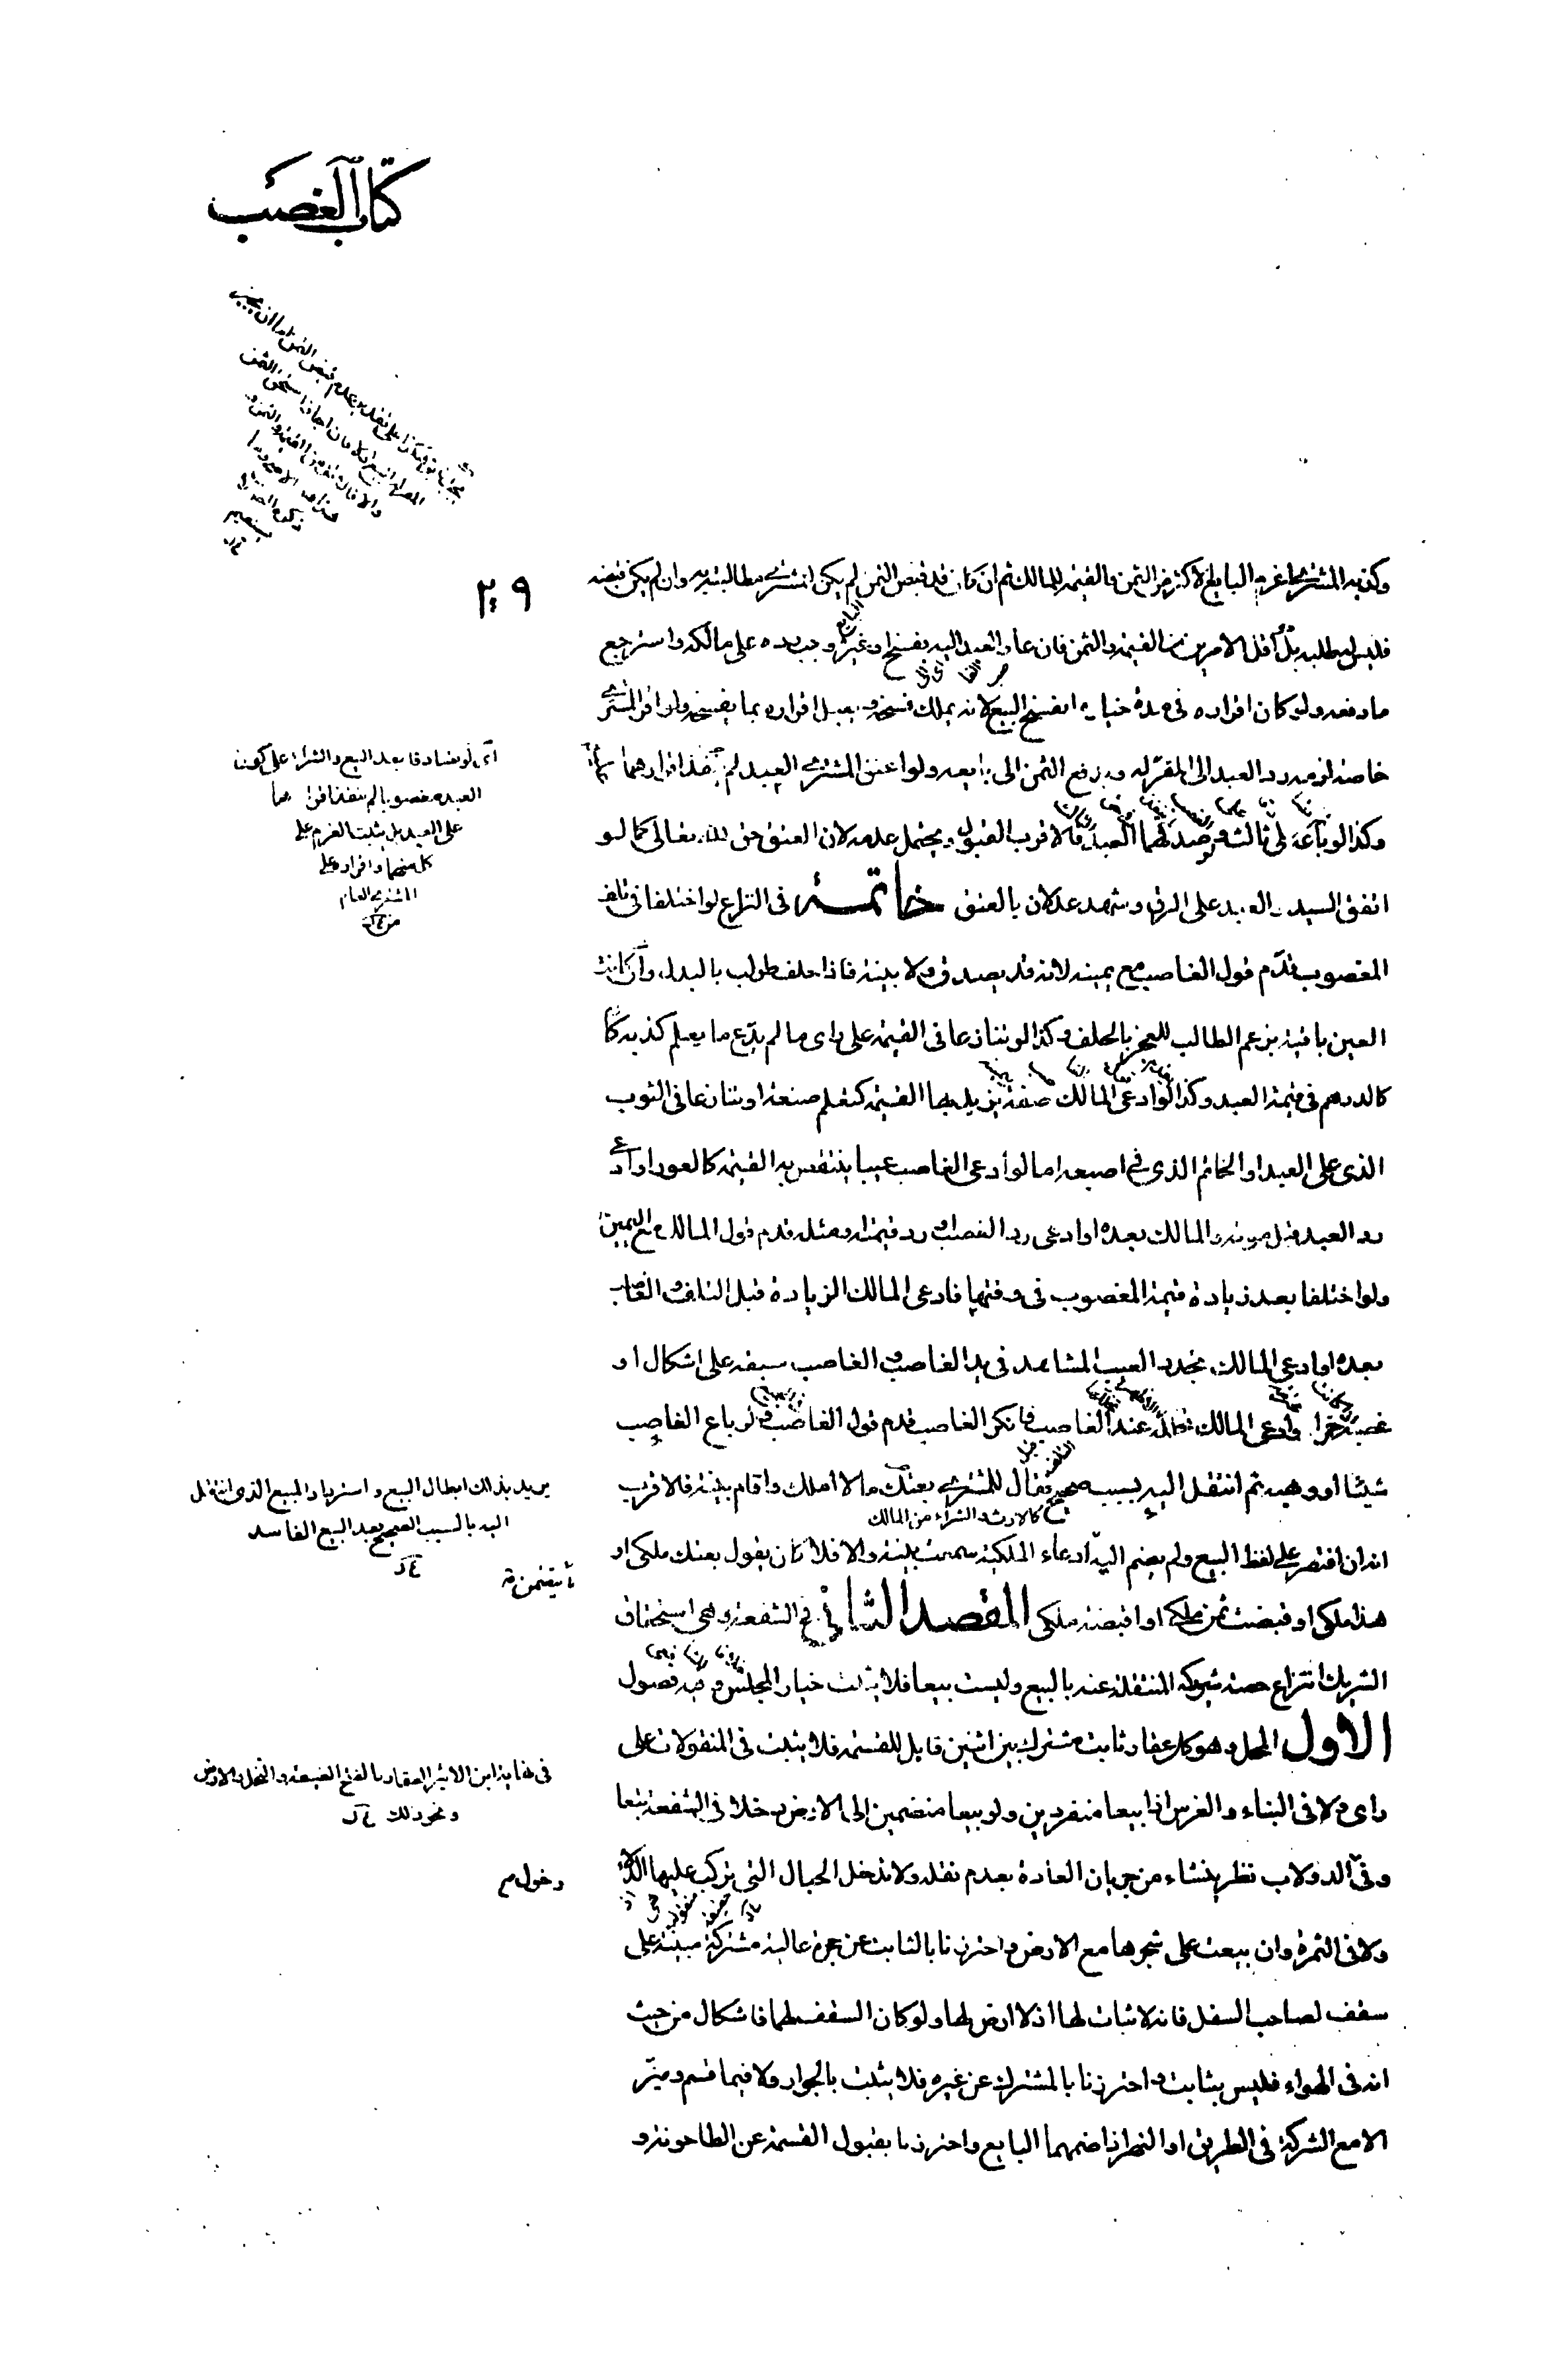 كتاب الغصب
٢٠٩
وكذبه المشتري اغرم البايع الاكثر من الثمن والقيمة للمالك ثم ان كان قد قبض الثمن لم يكن للمشتري مطالبته به وان لم يكن قبضه
فليس له طلبه بل اقل الامرين من القيمة والثمن فان عاد العبد اليه بفسخ او غيره وجب رده على مالكه واسترجع
ما دفعه ولو كان اقراره في مدة خياره انفسخ البيع لانه يملك فسخه فيقبل اقراره بما يفسخه ولو اقر المشتري
خاصة لزمه رد العبد الى المقر له ودفع الثمن الى بايعه ولو اعتق المشتري العبد لم ينفذ اقرارهما
وكذا لو باعه على ثالث ولو صدقهما العبد فالاقرب القبول ويحتمل عدمه لان العتق حق لله تعالى كما لو
اتفق السيد والعبد على الرق وشهد عدلان بالعتق خاتمة في النزاع لو اختلفا في تلف
المغصوب قدم قول الغاصب مع يمينه لانه قد يصدق ولا بينة فاذا حلف طولب بالبدل وان كانت
العين باقية بزعم الطالب للعجز بالحلف وكذا لو تنازعا في القيمة على راى ما لم يدع ما يعلم كذبه
كالدرهم في قيمة العبد وكذا لو ادعى المالك صفة يزيد بها القيمة كتعلم صنعة او تنازعا في الثوب
الذي على العبد او الخاتم الذي في اصبعه اما لو ادعى الغاصب عيبا ينتقص به القيمة كالعور او ادعى
رد العبد قبل موته والمالك بعده او ادعى رد الغصب او رد قيمته او مثله قدم قول المالك مع اليمين
ولو اختلفا بعد زيادة قيمة المغصوب في وقتها فادعى المالك الزيادة قبل التلف والغاصب
بعده او ادعى المالك تجدد العيب المشاهد في يد الغاصب والغاصب سبقه على اشكال او
غصبه خمرا وادعى المالك تخلله عند الغاصب فانكر الغاصب قدم قول الغاصب ولو باع الغاصب
شيئا او وهبه ثم انتقل اليه بسبب صحيح فقال للمشتري بعتك ما لا املك واقام بينة فالاقرب
كالارث والشراء من المالك
انه ان اقتصر على لفظ البيع ولم يضم اليه ادعاء الملكية سمعت بينته والا فلا كان يقول بعتك ملكي او
هذا ملكي او قبضت ثمن ملكي او اقبضته ملكي المقصد الثاني في الشفعة وهي استحقاق
الشريك انتزاع حصة شريكه المنتقلة عنه بالبيع وليست بيعا فلا يثبت خيار المجلس وفيه فصول
الاول المحل وهو كل عقار ثابت مشترك بين اثنين قابل للقسمة فلا يثبت في المنقولات على
راى ولا في البناء والغرس اذا بيعا منفردين ولو بيعا منضمين الى الارض دخلا في الشفعة تبعا
وفي الدولاب نظر ينشاء من جريان العادة بعدم نقله ولا تدخل الحبال التي تركب عليها الدلاء
ولا في الثمرة وان بيعت على شجرها مع الارض واحترزنا بالثابت عن حجرة عالية مشتركة مبنية على
سقف لصاحب السفل فانه لا ثبات لها اذ لا ارض لها ولو كان السقف لهما فاشكال من حيث
انه في الهواء فليس بثابت واحترزنا بالمشترك عن غيره فلا يثبت بالجوار ولا فيما قسم وميز
الا مع الشركة في الطريق او النهر اذا ضمهما البايع واحترزنا بقبول القسمة عن الطاحونة و
اى لو تصادقا بعد البيع والشراء على كون
العبد مغصوبا لم ينفذ اقرارهما
على العبد بل يثبت الغرم على
كل منهما واقراره على
يريد بذلك ابطال البيع واسترداد المبيع الذي انتقل
اليه بالسبب الصحيح بعد البيع الفاسد
في نهاية ابن الاثير العقار بالفتح الضيعة والنخل والارض
ونحو ذلك